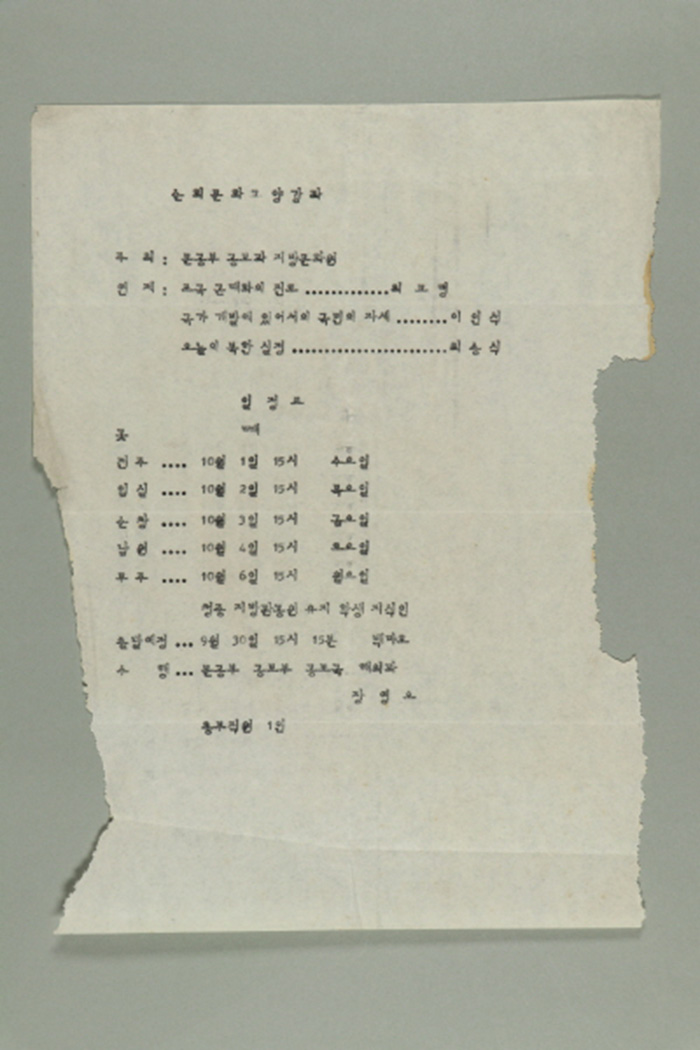 순회문화교양강좌
주 최 : 문공부 공보과 지방문화원
연 제 : 조국 근대화의 진로 .............최 고 영
국가 개발에 있어서의 국민의 자세 ........이 인 식
오늘의 북한 실정 ........................최 승 식
일 정 표
곳 때
전 주 .... 10월 1일 15시 수요일
임 실 .... 10월 2일 15시 목요일
순 창 .... 10월 3일 15시 금요일
남 원 .... 10월 4일 15시 토요일
무 주 .... 10월 6일 15시 월요일
청중 지방공무원 유지 학생 지식인
출발예정 ... 9월 30일 15시 15분
수 행 ... 문공부 공보부 공보국
동부직원 1인